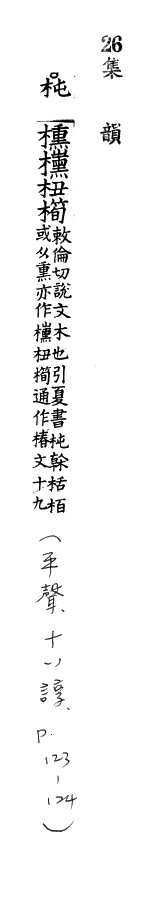 26集韻
杶櫄杻橁
敕倫切說文木也引夏書杶榦栝栢
或从熏亦作杻橁通作椿文十九
(平聲、十八諄、p.123-124)